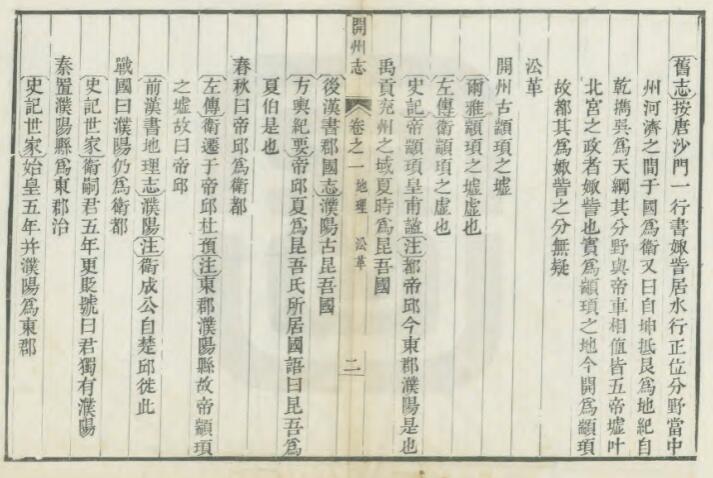 舊志按唐沙門一行書娵訾居水行正位分野當中
州河濟之間于國爲衛又曰自坤抵艮爲地紀自
乾擕巽爲天綱其分野與帝車相値皆五帝墟叶
北宮之政者娵訾也實爲顓頊之地今開爲顓頊
故都其爲娵訾之分無疑
沿革
開州古顓頊之墟
爾雅顓頊之墟虛也
左傳衛顓頊之虛也
史記帝顓頊皇甫謐注都帝邱今東郡濮陽是也
禹貢兗州之域夏時爲昆吾國
開州志
卷之一
地理
沿革
二
後漢書郡國志濮陽古昆吾國
方輿紀要帝邱夏爲昆吾氏所居國語曰昆吾爲
夏伯是也
春秋曰帝邱爲衛都
左傳衛遷于帝邱杜預注東郡濮陽縣故帝顓頊
之虛故曰帝邱
前漢書地理志濮陽注衛成公自楚邱徙此
戰國曰濮陽仍爲衛都
史記世家衛嗣君五年更貶號曰君獨有濮陽
秦置濮陽縣爲東郡治
史記世家始皇五年幷濮陽爲東郡